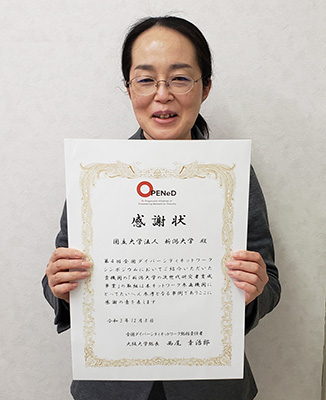 OPENeD
感謝状
国立大学法人 新潟大学 殿
第4回全国ダイバーシティネットワーク
シンポジウムにおいてご紹介いただいた
貴機関の「新潟大学の次世代研究者育成
事業」の取組は本ネットワーク参画機関に
とってたいへん参考となる事例であることに
感謝の意を表します
令和3年12月8日
全国ダイバーシティネットワーク総括責任者
大阪大学総長 西尾 章治郎